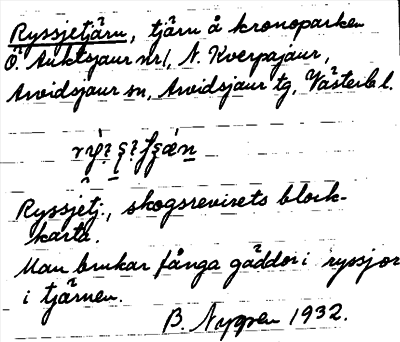 Ryssjetjärn, tjärn å kronoparken
Ö. Auktsjaur nr 1, N. Kverpajaur,
Arvidsjaur sn, Arvidsjaur tg, Västerb l.
Ryssjetj., skogsrevirets block-
karta.
Man brukar fånga gäddor i ryssjor
i tjärnen.
B. Nygren 1932.